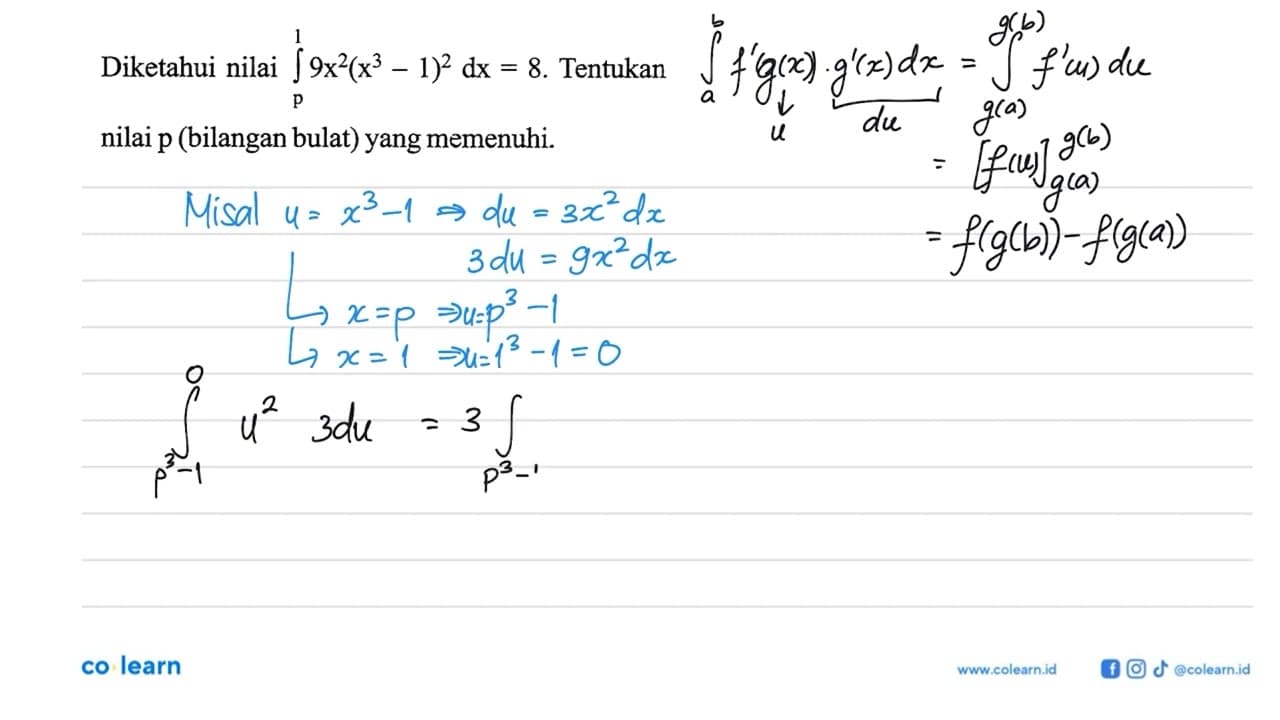 Diketahui nilai ∫ₚ¹ 9x²(x³ – 1)² dx = 8. Tentukan
nilai p (bilangan bulat) yang memenuhi.
∫ₐᵇ f'g(x) . g'(x) dx = ∫_{g(a)}^{g(b)} f'(u) du
↓ u du
= [f(u)]_{g(a)}^{g(b)}
= f(g(b)) - f(g(a))
Misal u = x³ - 1 ⇒ du = 3x² dx
3 du = 9x² dx
↳ x = p ⇒ u = p³ - 1
↳ x = 1 ⇒ u = 1³ - 1 = 0
∫_{p³-1}^{0} u² 3du = 3 ∫_{p³-1}
co learn
www.colearn.id
@colearn.id